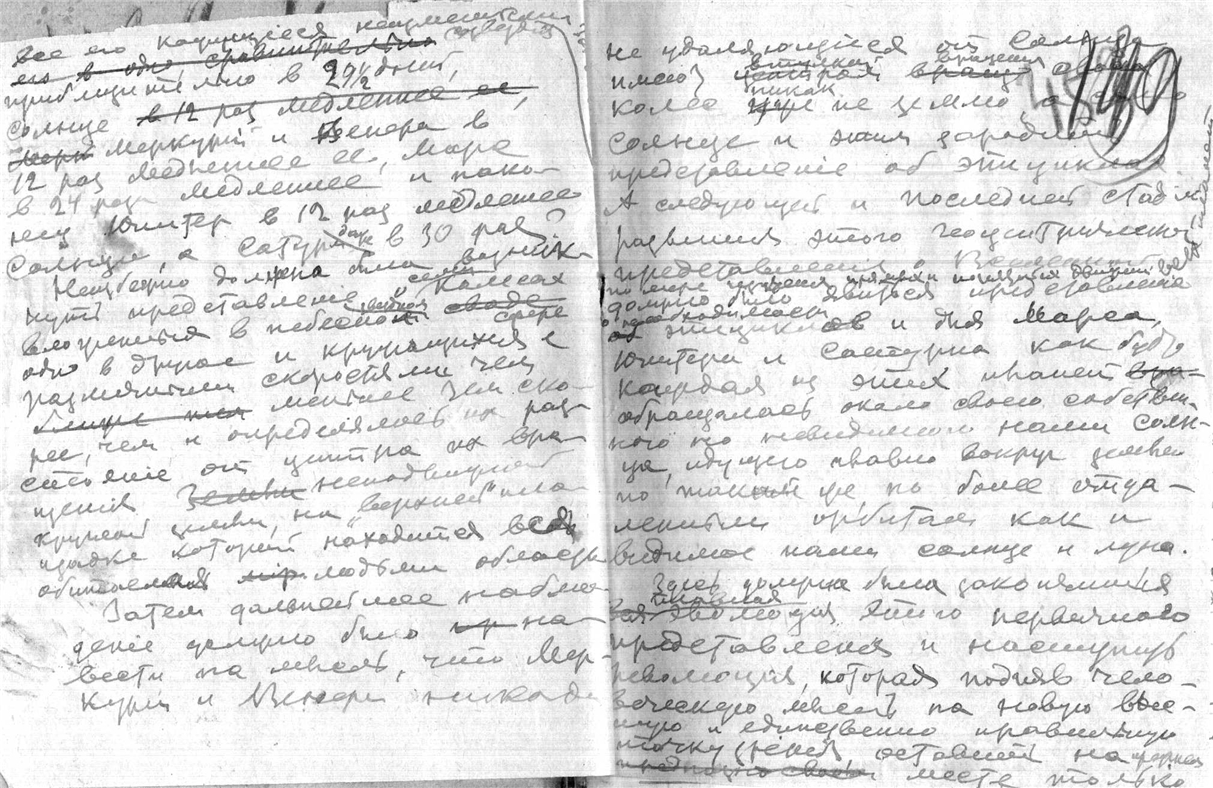 все его кажущиеся
приблизительно в 29½ дней,
солнце в 12 раз медленнее ее,
Меркурий и Венера в
12 раз медленнее ее, Марс
в 24 раза медленнее, и нако-
нец Юпитер в 12 раз медленнее
Солнца, а Сатурн даже в 30 раз?
Неизбежно должна была возник-
нуть представление о семи колесах
вложенных в небесной сфере
одно в другое и кружащихся с
различными скоростями чем
ближе тем меньше тем ско-
рее, чем и определялось их рас-
стояние от центра их вра-
щения Земли неподвижной
круглой земли, на "верхней" пло-
щадке которой находится вся
обитаемая мир людьми область
Затем дальнейшее наблю-
дение должно было на-
вести на мысль, что Мер-
курий и Венера никогда
не удаляющиеся от Солнца
имеют центром вращения
колес никак не землю а само
солнце и этим зародили
представление об эпициклах
А следующей и последней стадией
развития этого геоцентрического
представления о Вселенной
должно было явиться представление
о необходимости эпициклов и для Марса,
Юпитера и Сатурна как будто
каждая из этих планет
обращалась около своего собствен-
ного но невидимого нами солн-
ца, идущего плавно вокруг земли
по таким же но более отда-
ленным орбитам как и
видимое нами солнце и луна.
Здесь должна была закончиться
плавная эволюция этого первичного
представления и наступить
революция, которая подняв чело-
веческую мысль на новую выс-
шую и единственно правильную
точку зрения оставила на прежнем
месте только